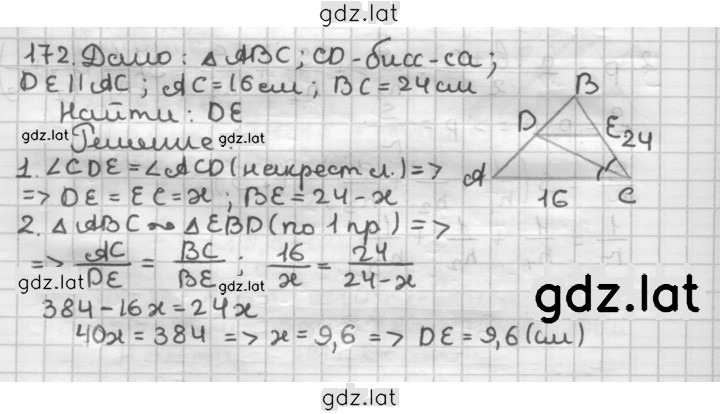 gdz.lat
172. Дано: △ ABC; CD - бисс-са;
DE || AC; AC = 16 см; BC = 24 см
Найти: DE
gdz.lat Решение: gdz.lat
1. ∠CDE = ∠ACD (накрест л.) =>
=> DE = EC = x; BE = 24 - x
2. △ ABC ~ △ EBD (по 1 пр) =>
=> AC/DE = BC/BE; 16/x = 24/24-x
gdz.lat gdz.lat
384 - 16x = 24x
40x = 384 => x = 9,6 => DE = 9,6 (см)
B
D E 24
A 16 C
gdz.lat
gdz.lat